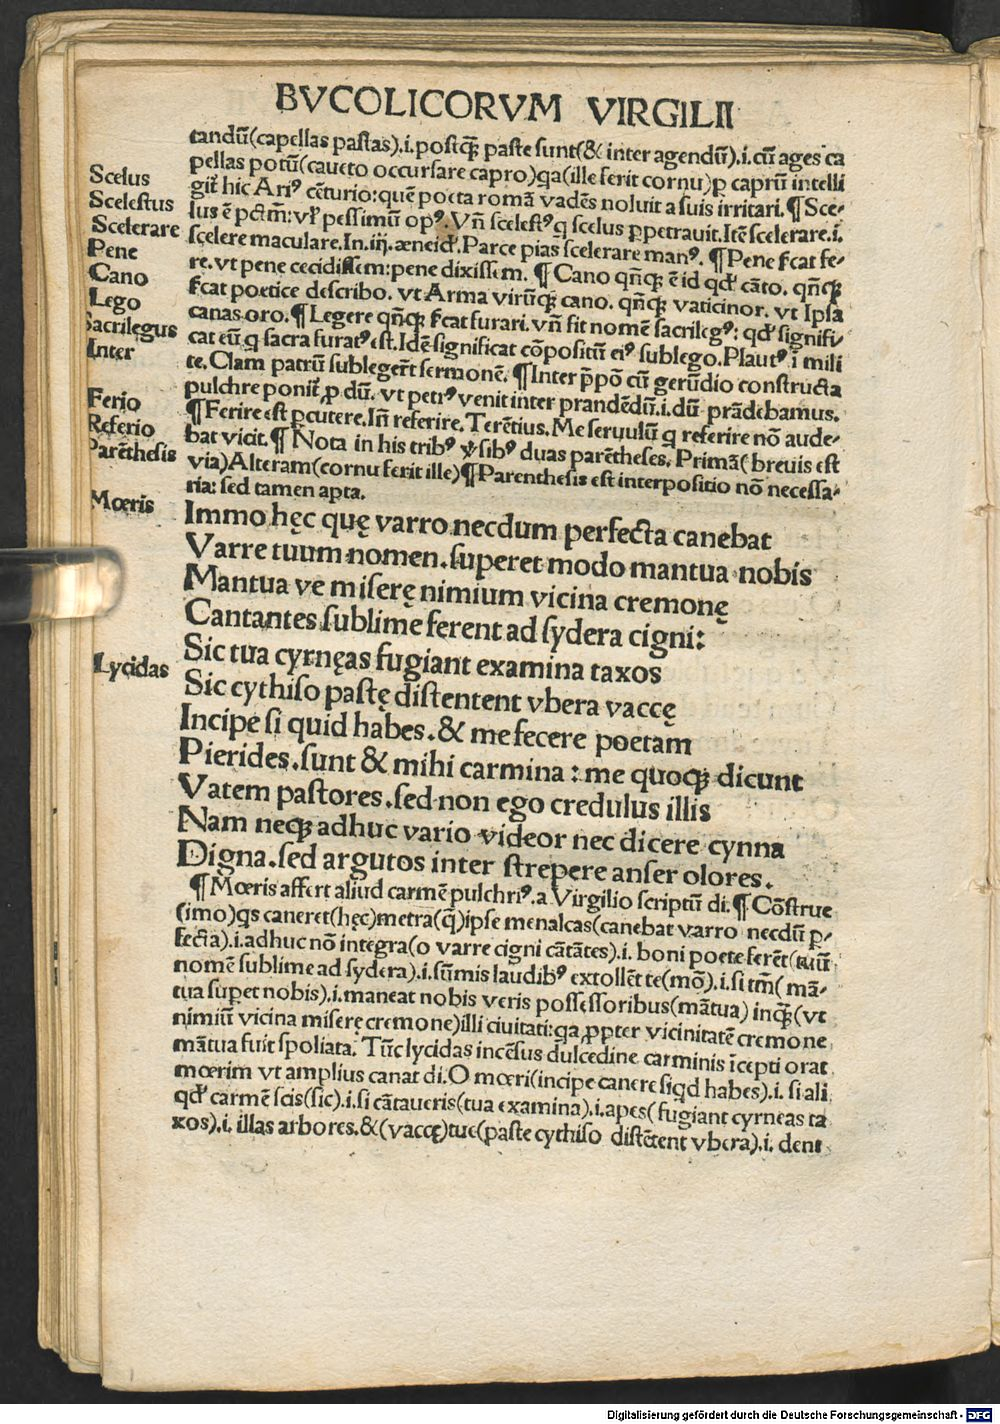 BVCOLICORVM VIRGILII
tandū(capellas pastas).i.postqȝ paste sunt(& inter agendū).i.cū ages ca
pellas potū(caueto occursare capro)qa(ille ferit cornu)ꝑ caprū intelli
Scelus
git̄ hic Ari⁹ cēturio:quē poeta romā vadēs noluit a suis irritari.¶Sce-
Scelestus
lus ē pctm̄:vl' pessimū op⁹.Vn̄ scelest⁹ q scelus ꝑpetrauit.Itē scelerare.i.
Scelerare
scelere maculare.In.iij.æneid'.Parce pias scelerare man⁹.¶Pene s̄cat fe-
Pene
re.vt pene cecidissem:pene dixissem.¶Cano qn̄qȝ ē id qd' cāto.qn̄qȝ
Cano
s̄cat poetice describo.vt Arma virūqȝ cano.qn̄qȝ vaticinor.vt Ipsa
Lego
canas oro.¶Legere qn̄qȝ s̄cat furari.vn̄ fit nomē sacrileg⁹:qd' signifi-
Sacrilegus
cat eū q sacra furat⁹ est.Idē significat cōpositū ei⁹ sublego.Plaut⁹ ī mili
Inter
te.Clam patrū sublegerēt sermonē.¶Inter p̄pō cū gerūdio constructa
pulchre ponit̄ ꝓ dū.vt petr⁹ venit inter prandēdū.i.dū prādebamus.
Ferio
¶Ferire est ꝑcutere.In̄ referire.Terētius.Me seruulū q referire nō aude-
Referio
bat vicit.¶Nota in his trib⁹ ꝟsib⁹ duas parētheses.Primā(breuis est
Parēthesis
via)Alteram(cornu ferit ille)¶Parenthesis est interpositio nō necessa-
ria:sed tamen apta.
Mœris
Immo hęc quę varro necdum perfecta canebat
Varre tuum nomen.superet modo mantua nobis
Mantua ve miserę nimium vicina cremonę
Cantantes sublime ferent ad sydera cigni:
Lycidas
Sic tua cyrnęas fugiant examina taxos
Sic cythiso pastę distentent vbera vaccę
Incipe si quid habes.& me fecere poetam
Pierides.sunt & mihi carmina:me quoqȝ dicunt
Vatem pastores.sed non ego credulus illis
Nam neqȝ adhuc vario videor nec dicere cynna
Digna.sed argutos inter strepere anser olores.
¶Mœris affert aliud carmē pulchri⁹.a Virgilio scriptū di.¶Cōstrue
(imo)qs caneret(hęc)metra(q̄)ipse menalcas(canebat varro necdū ꝑ-
fecta).i.adhuc nō integra(o varre cigni cātātes).i.boni poete ferēt(tuū
nomē sublime ad sydera).i.sūmis laudib⁹ extollēt te(mō).i.si tm̄(mā-
tua suꝑet nobis).i.maneat nobis veris possessoribus(mātua)inqȝ(vt
nimiū vicina miserę cremone)illi ciuitati:qa ꝓpter vicinitatē cremone
mātua fuit spoliata.Tūc lycidas incēsus dulcedine carminis īcepti orat
mœrim vt amplius canat di.O mœri(incipe canere siqd habes).i.si ali
qd' carmē scis(sic).i.si cātaueris(tua examina).i.apes(fugiant cyrneas ta
xos).i.illas arbores.&(vaccę)tue(paste cythiso distētent vbera).i.dent
Digitalisierung gefördert durch die Deutsche Forschungsgemeinschaft - DFG